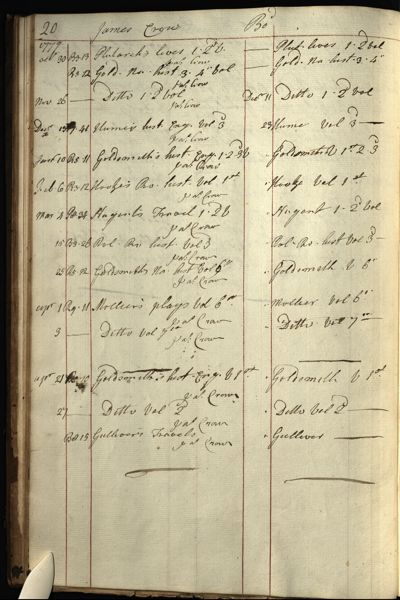 20 James Crow Bo^d
1779
Oct 30 B 13 Plutarch's lives 1. 2^d V. Plut. lives 1. 2^d vol
Ja^s Crow
B 12 Gold. Na. hist 3. 4" Vol Gold. Na hist 3. 4"
Ja^s Crow
Nov 26 — Ditto 1. 2^d Vol Dec^r 11 Ditto 1. 2^d vol
Ja^s Crow
Dec^r 41 Hume's hist. Eng. Vol 3^d 23 Hume Vol 3^d —
Ja^s Crow
10 B 11 Goldsmith's hist Eng. 1. 2. 3^d V Goldsmith V 1^st 2. 3^d
Ja^s Crow
6 B 12 Hooke's Ro. hist. Vol 1^st Hooke Vel 1^st
Ja^s Crow
Mar 4 Nugents Travel 1. 2^d V Nugent 1. 2^d Vol
Ja^s Crow
15 B 26 Rol. An hist. Vol 3^d Rol. An. hist Vol 3^d —
Ja^s Crow
25 B 12 Goldsmiths Na. hist Vol 6^th Goldsmith V 6^th
Ja^s Crow
Apr 1 B 11 Molliers plays Vol 6^th Mollier vol 6^th
Ja^s Crow
3 — Ditto Vol 7^th Ditto Vol 7^th —
Ja^s Crow
Apr 21 Goldsmith's hist. Eng. V 1^st Goldsmith V 1^st
Ja^s Crow
27 — Ditto Vol 2^d Ditto Vol 2^d —
Ja^s Crow
B 15 Gullivers Travels Gulliver —
Ja^s Crow